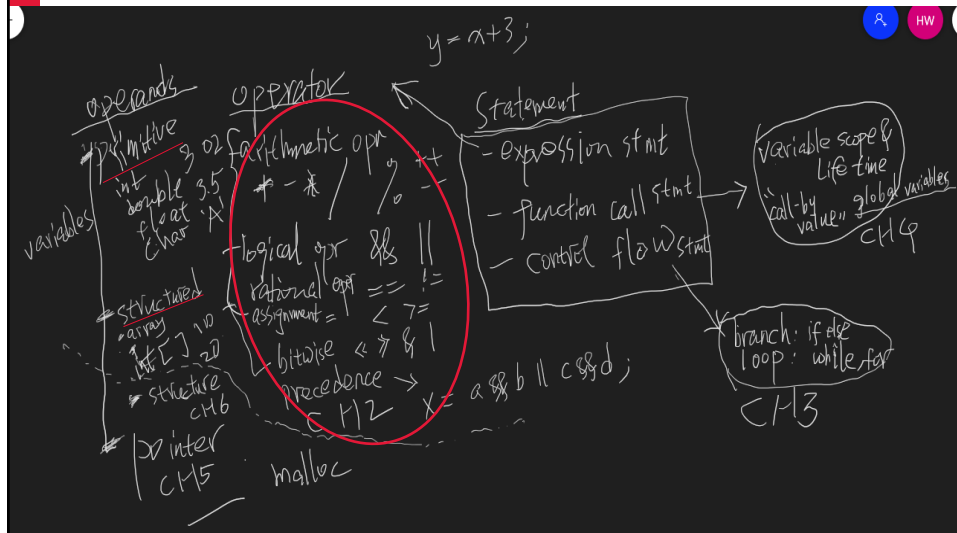 HW
y = x+3;
operands
primitive
int 3
double 3.5
float
char 'A'
variables
structured
array
int[] 1D
2D
structure
CH6
pointer
CH5
malloc
operator
arithmetic opr
+ - * / % ++ --
logical opr && ||
rational opr == !=
< >=
assignment =
bitwise << >> & |
precedence →
CH2
x = a && b || c && d;
Statement
- expression stmt
- function call stmt
- control flow stmt
variable scope &
Life time
"call-by
value" global variables
CH4
branch: if else
loop: while for
CH3